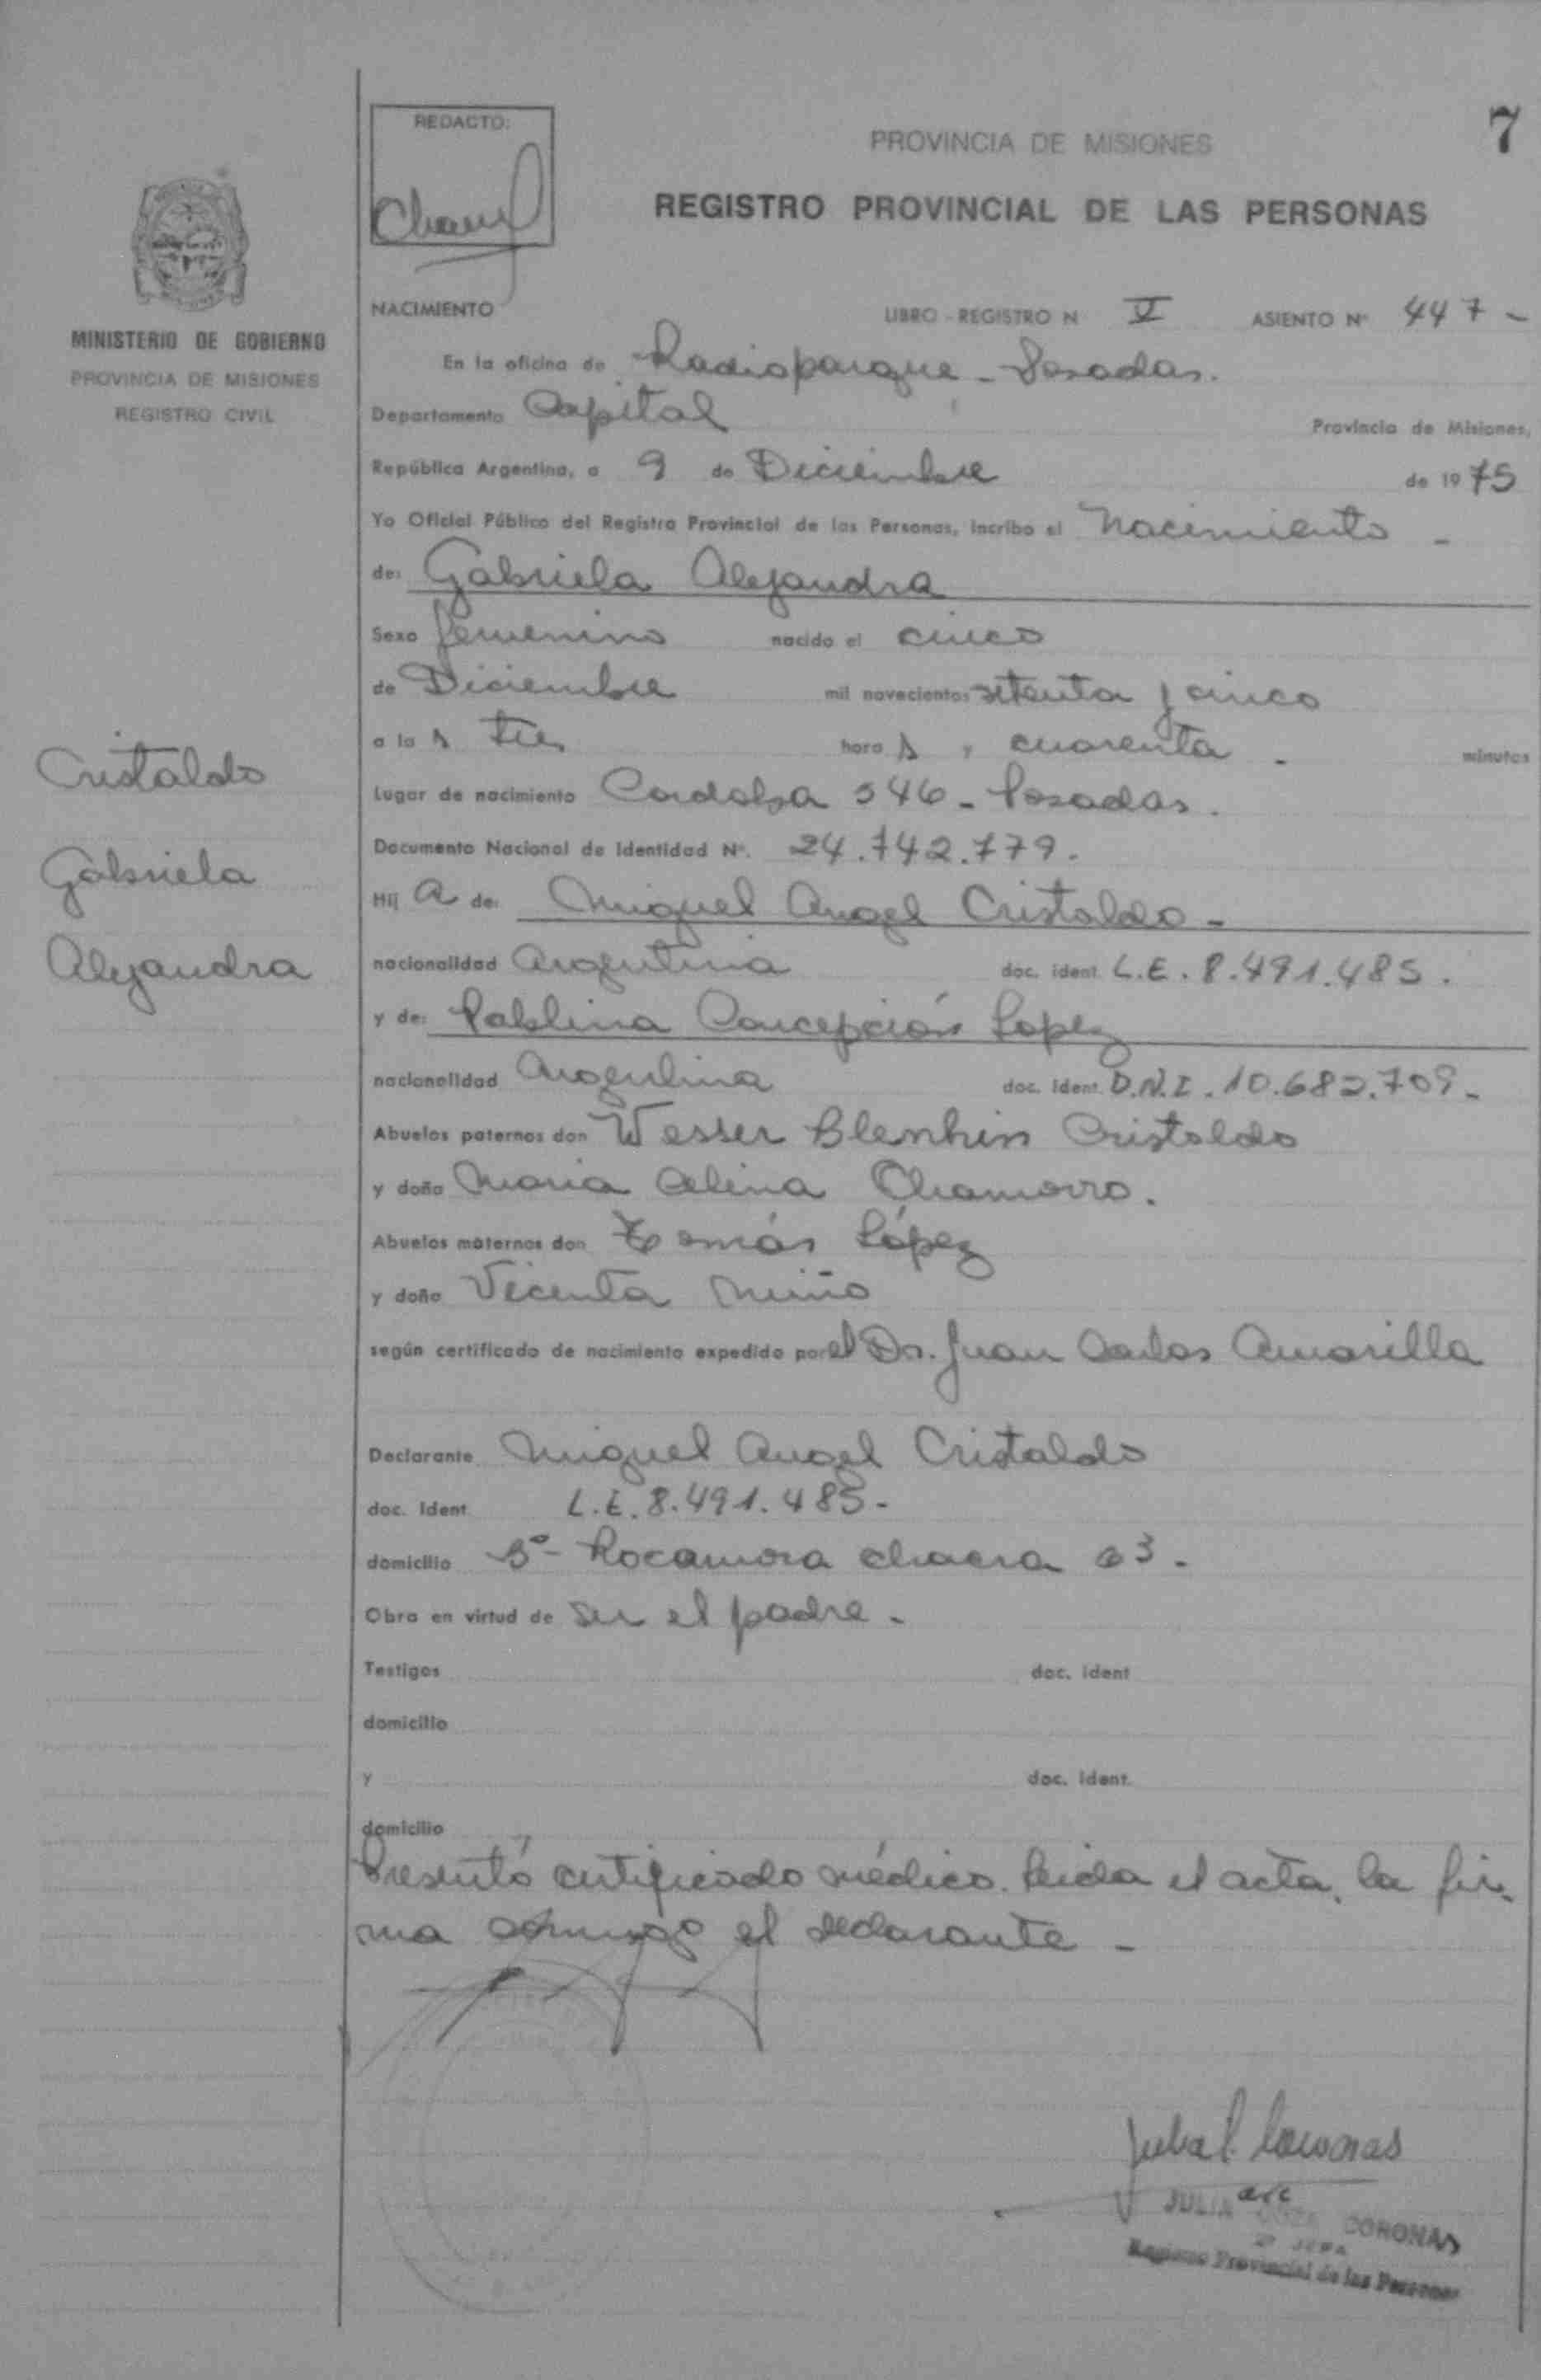 REDACTO:
7
PROVINCIA DE MISIONES
REGISTRO PROVINCIAL DE LAS PERSONAS
MINISTERIO DE GOBIERNO
PROVINCIA DE MISIONES
REGISTRO CIVIL
NACIMIENTO LIBRO - REGISTRO N V ASIENTO Nº 447 -
En la oficina de Radioparque - Posadas.
Departamento Capital Provincia de Misiones,
República Argentina, a 9 de Diciembre de 1975
Yo Oficial Público del Registro Provincial de las Personas, incribo el Nacimiento -
de: Gabriela Alejandra
Sexo femenino nacido el cinco
de Diciembre mil novecientos setenta y cinco
a las tres horas, cuarenta - minutos
Lugar de nacimiento Cordoba 546 - Posadas.
Documento Nacional de Identidad Nº. 24.742.779.
Hija de: Miguel Angel Cristaldo -
nacionalidad Argentina doc. ident. L.E. 8.491.485.
y de: Pablina Concepción Lopez
nacionalidad Argentina doc. ident. D.N.I. 10.682.709 -
Abuelos paternos don Wesser Blenhin Cristaldo
y doña Maria Celina Chamorro.
Abuelos maternos don Tomás López
y doña Vicenta Miño
según certificado de nacimiento expedido por el Dr. Juan Carlos Amarilla
Declarante Miguel Angel Cristaldo
doc. Ident. L.E. 8.491.485 -
domicilio Bº - Rocamora chacra 63 -
Obra en virtud de ser el padre -
Testigos doc. ident
domicilio
y doc. ident.
domicilio
Presentó certificado médico. Leida el acta, la fir-
ma conmigo el declarante -
Cristaldo
Gabriela
Alejandra
JULIA CORONAS
Registro Provincial de las Personas